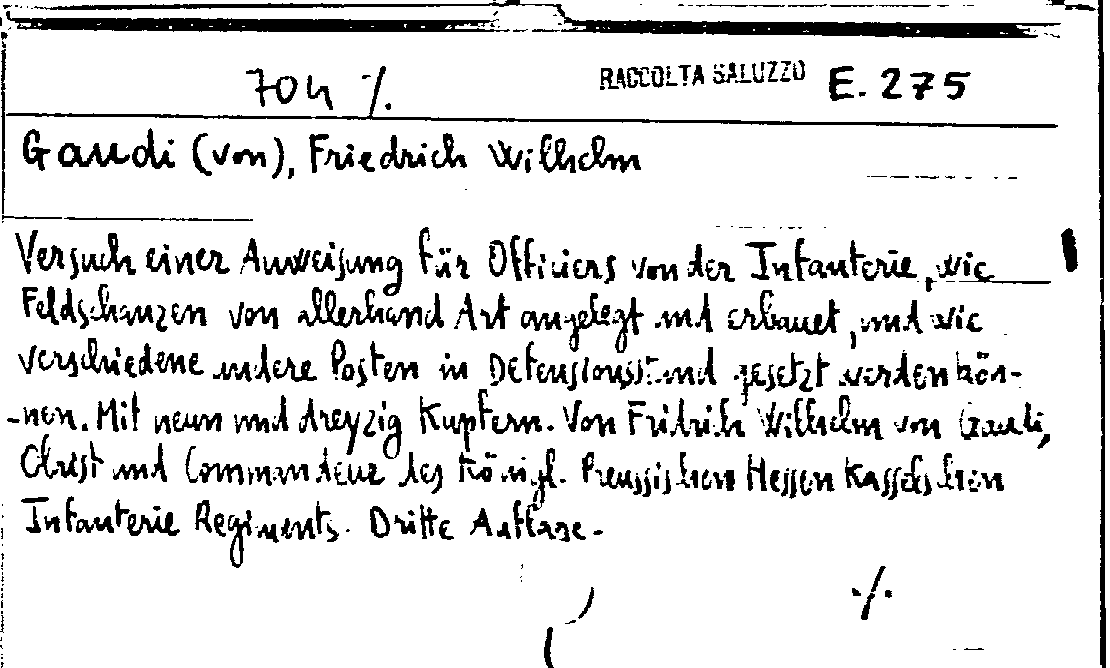 704 ·/.
RACCOLTA SALUZZO E. 275
Gaudi (von), Friedrich Wilhelm
Versuch einer Anweisung für Officiers von der Infanterie, wie
Feldschanzen von allerhand Art angelegt und erbauet, und wie
verschiedene andere Posten in Defensionsstand gesetzt werden kön-
-nen. Mit neun und dreyzig Kupfern. Von Fridrich Wilhelm von Gaudi,
Obrist und Commandeur des Königl. Preussischen Hessen Kasselschen
Infanterie Regiments. Dritte Auflage.
·/.